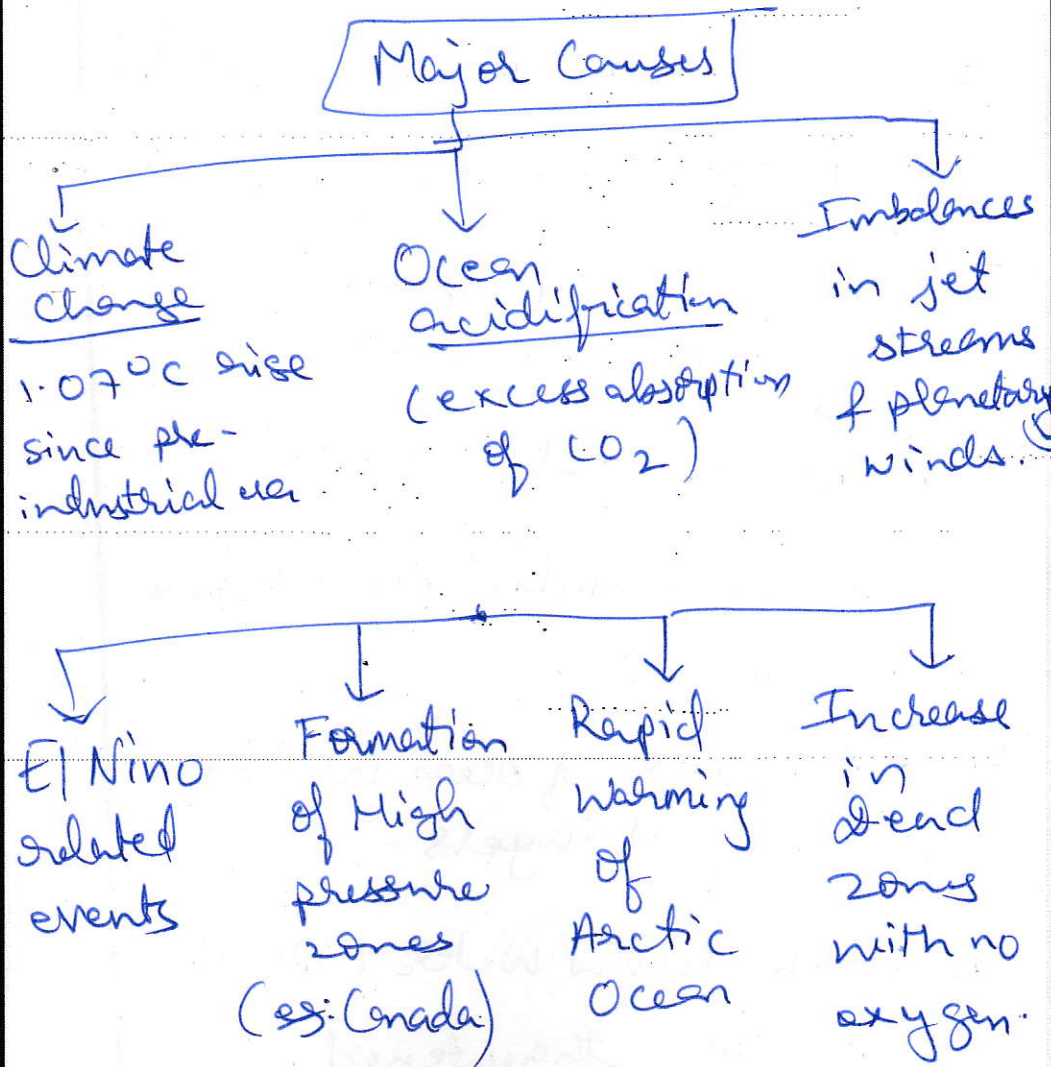 Major Causes
Climate
Change
1.07°C rise
since pre-
industrial era
Ocean
acidification
(excess absorption
of CO2)
Imbalances
in jet
streams
& planetary
winds.
El Nino
related
events
Formation
of High
pressure
zones
(eg: Canada)
Rapid
Warming
of
Arctic
Ocean
Increase
in
Dead
zones
with no
oxygen.